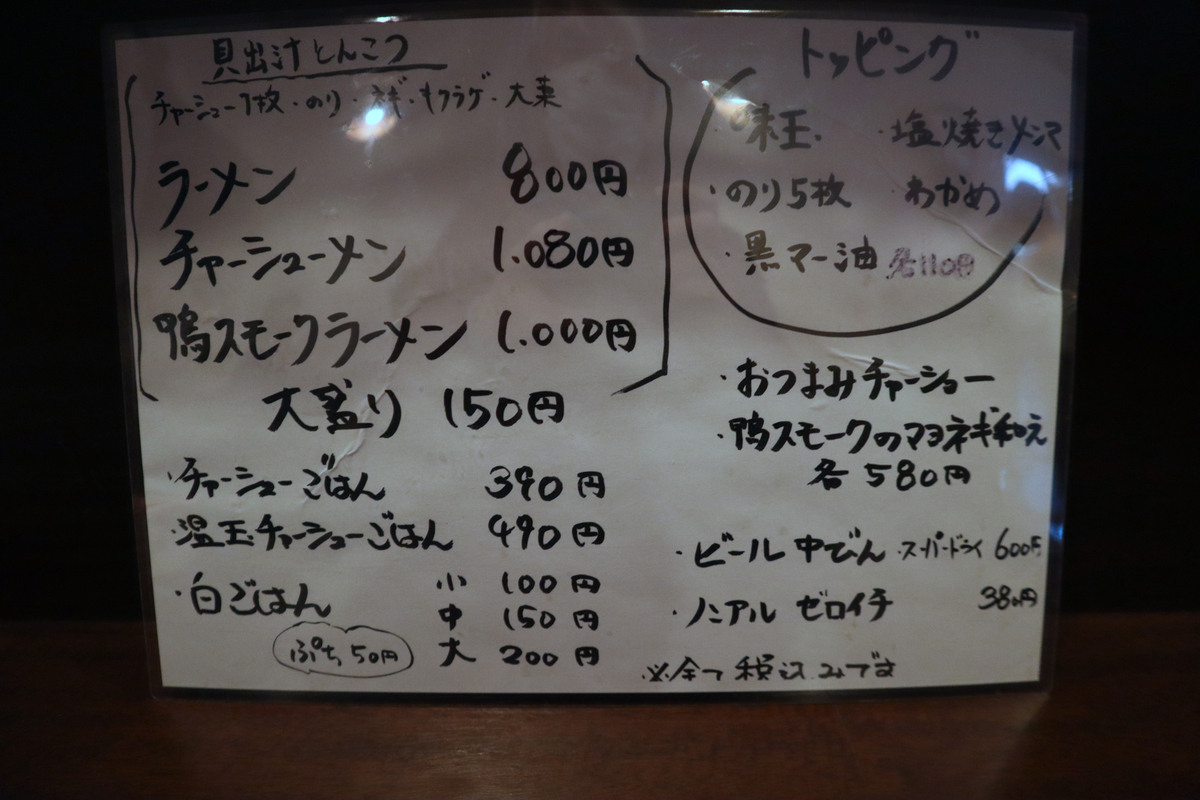 見出汁とんこつ
チャーシュー1枚・のり・ネギ・キクラゲ・大葉
ラーメン 800円
チャーシューメン 1.080円
鴨スモークラーメン 1.000円
大盛り 150円
・チャーシューごはん 390円
・温玉チャーシューごはん 490円
・白ごはん 小 100円
中 150円
ぷち50円 大 200円
トッピング
・味玉 ・塩焼きメンマ
・のり5枚 わかめ
・黒マー油 各110円
・おつまみチャーシュー
・鴨スモークのマヨネギ和え
各580円
・ビール中びん・スーパードライ 600円
・ノンアル ゼロイチ 380円
※全て税込みです